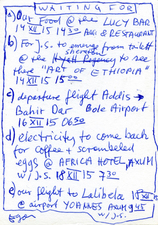 WAITING FOR
a) Our Food @ the LUCY BAR
14 XII 15 1430 AND & RESTAURANT
b) For J.S. to emerge from toilet
@ the Hyatt Regency to see
there "ART OF ETHIOPIA"
14 XII 15 1500
c) departure flight Addis →
Bahir Dar Bole Airport
16 XII 15 0630
d) electricity to come back
for coffee + scrambeled
eggs @ AFRICA HOTEL, AXUM
w/J.S. 18 XII 15 730
e) our flight to Lalibela
@ airport YOANNES AXUM 945
w/J.S.